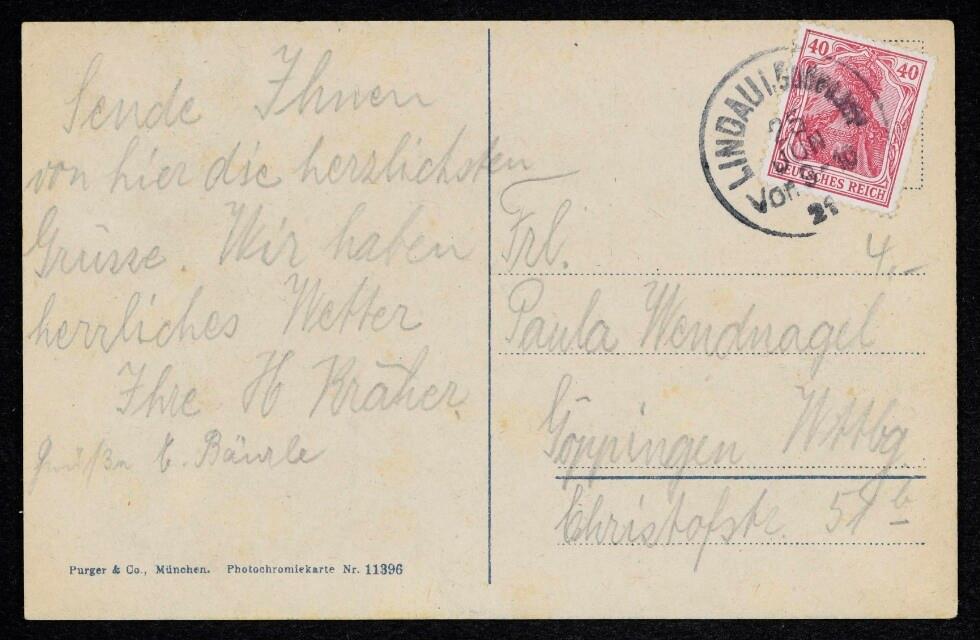 Sende Ihnen
von hier die herzlichsten
Grüsse. Wir haben
herrliches Wetter
Ihre H Kräher
Grüßen E. Bäurle
Purger & Co., München. Photochromiekarte Nr. 11396
40 40
DEUTSCHES REICH
LINDAU i. Bodensee
Vor.
21
4.-
Frl.
Paula Wendnagel
Göppingen Wttbg
Christofstr. 51b